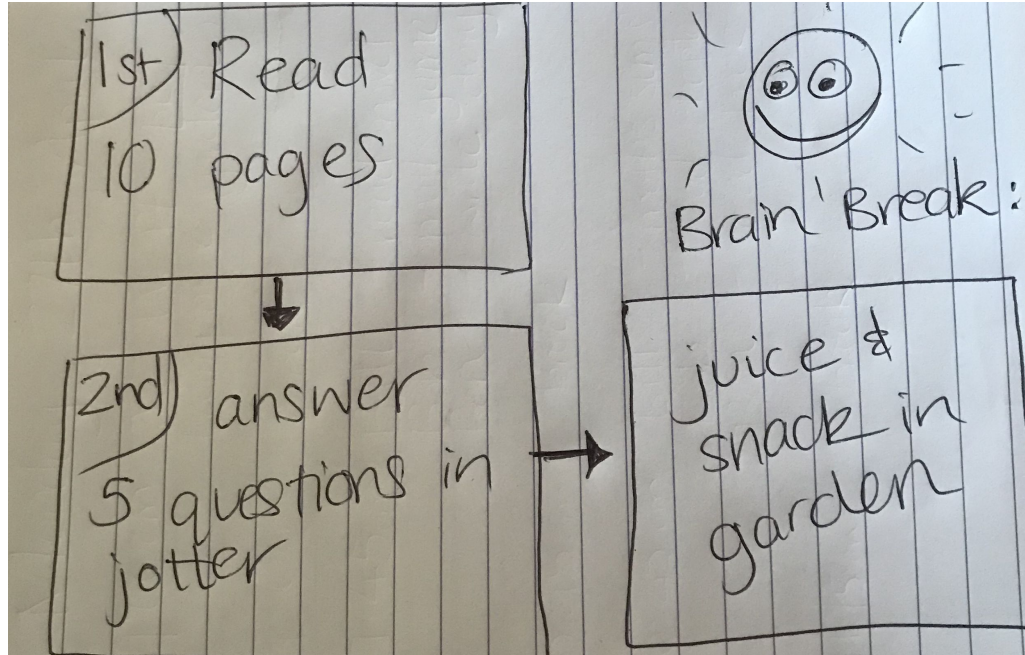 1st) Read
10 pages
2nd) answer
5 questions in
jotter
Brain Break:
juice &
snack in
garden